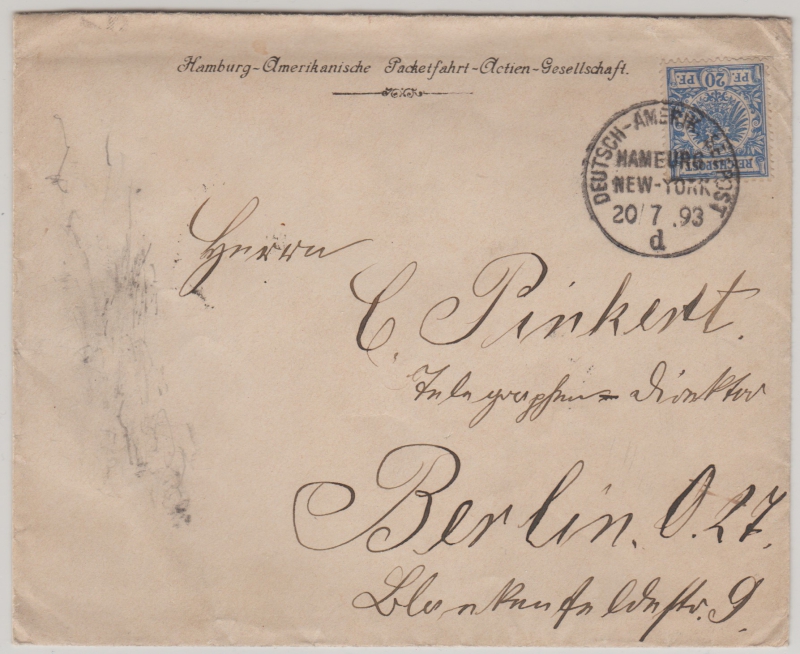 Hamburg-Amerikanische Packetfahrt-Actien-Gesellschaft.
PF. 20 PF.
REICHSPOST
DEUTSCH-AMERIK. SEEPOST
HAMBURG
NEW-YORK
20/7.93
d
Herrn
C. Pinkert.
Telegraphen-Direktor
Berlin. O. 27.
Blankenfeldestr. 9